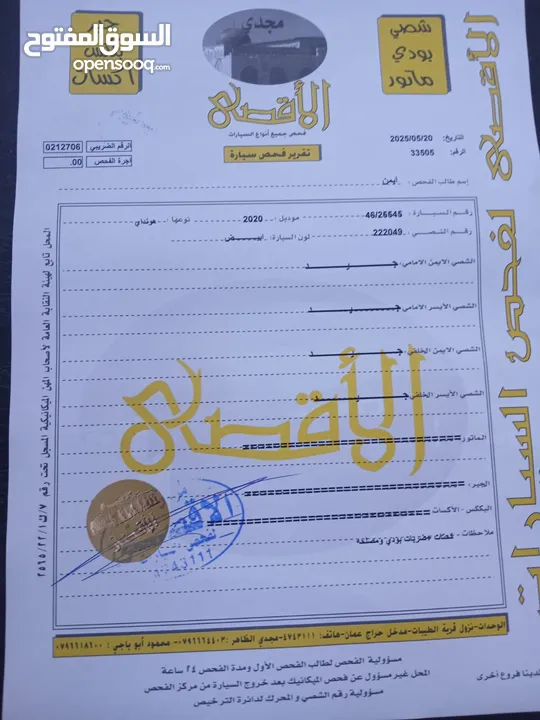 السوق المفتوح
opensooq.com
شصي
بودي
ماتور
مجدي
الأقصى
فحص جميع أنواع السيارات
تقرير فحص سيارة
التاريخ: 2025/05/20
الرقم: 33505
الرقم الضريبي 0212706
اجرة الفحص .00
إسم طالب الفحص: ايمن
رقم السيارة: 46/26545 موديل: 2020 نوعها: هونداي
رقم الشصي: 222049 لون السيارة: ابيض
الشصي الايمن الامامي: جيد
الشصي الأيسر الامامي: جيد
الشصي الايمن الخلفي: جيد
الشصي الأيسر الخلفي: جيد
الماتور:
الجير:
البكس: الأكسات
ملاحظات: قصات +ضربات بودي ومصلحه
الأقصى
الأقصى لفحص السيارات
المحل تابع لهيئة النقابة العامة لأصحاب المهن الميكانيكية المسجل تحت رقم
الوحدات-نزول قرية الطيبات-مدخل حراج عمان-هاتف: ٤٧٤٣١١١-مجدي الظاهر: ٠٧٩٦٦٦٤٤٠٣- محمود أبو باجي: ٠٧٩٦٦١٨٦٠٠
مسؤولية الفحص لطالب الفحص الأول ومدة الفحص ٢٤ ساعة
المحل غير مسؤول عن فحص الميكانيك بعد خروج السيارة من مركز الفحص
مسؤولية رقم الشصي و المحرك لدائرة الترخيص
لدينا فروع أخرى